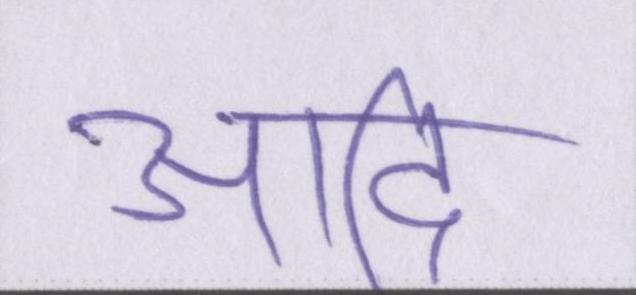 आदि